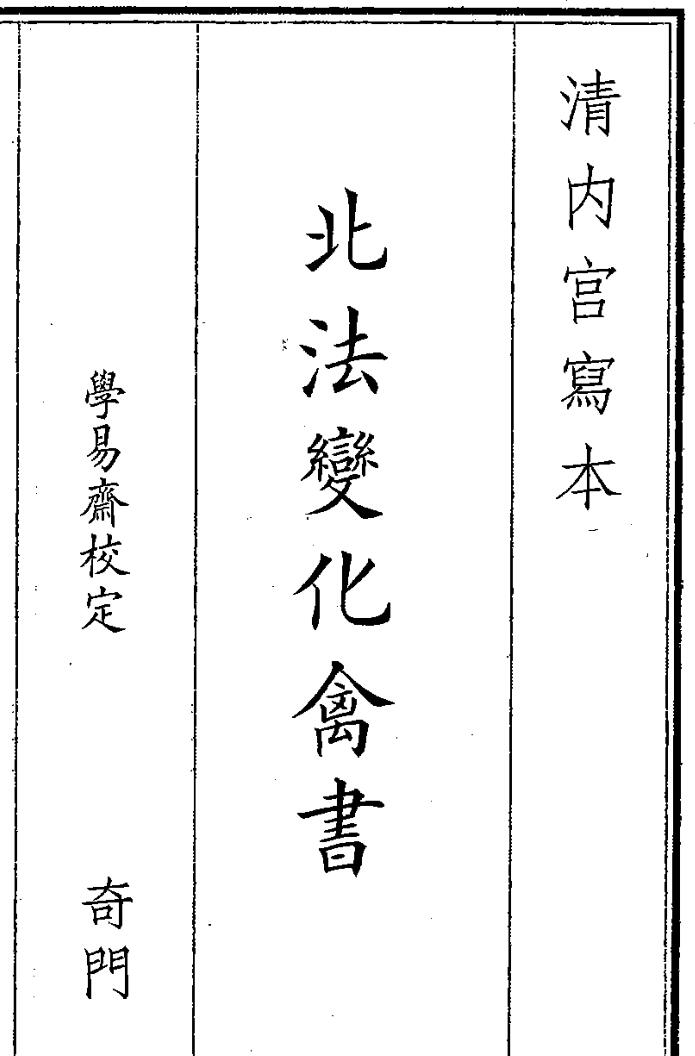 清内宮寫本
北法變化禽書
學易齋校定 奇門